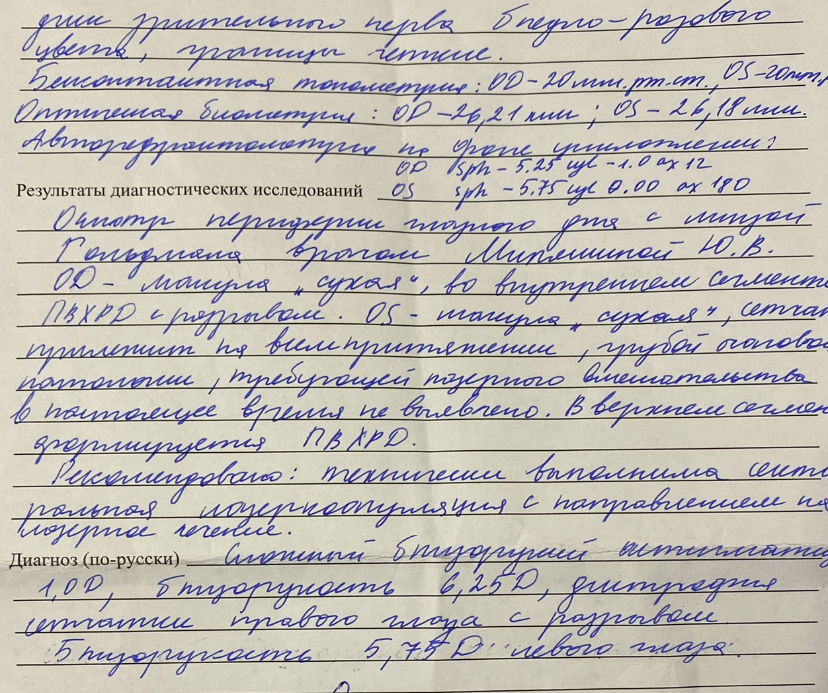 диск зрительного нерва бледно-розового
цвета, границы четкие.
Бесконтактная тонометрия: OD-20мм.рт.ст., OS-20мм.р
Оптическая биометрия: OD-26,21 мм; OS-26,18 мм.
Авторефрактометрия на фоне циклоплегии:
OD sph-5.25 cyl-1.0 ax 12
Результаты диагностических исследований OS sph-5.75 cyl 0.00 ax 180
Осмотр периферии глазного дна с линзой
Гольдмана врачом Ю.В.
OD- макула "сухая", во внутреннем сегменте
ПВХРД с разрывом. OS-макула "сухая", сетчат
прилежит на всем притяжении, грубой очагово
патологии, требующей лазерного вмешательства
в настоящее время не выявлено. В верхнем сегмен
формируется ПВХРД.
Рекомендовано: технически выполнима секто
ральная лазеркоагуляция с направлением на
лазерное лечение.
Диагноз (по-русски) Сложный близорукий астигматиз
1,0D, близорукость 6,25D, дистрофия
сетчатки правого глаза с разрывом.
Близорукость 5,75D левого глаза.